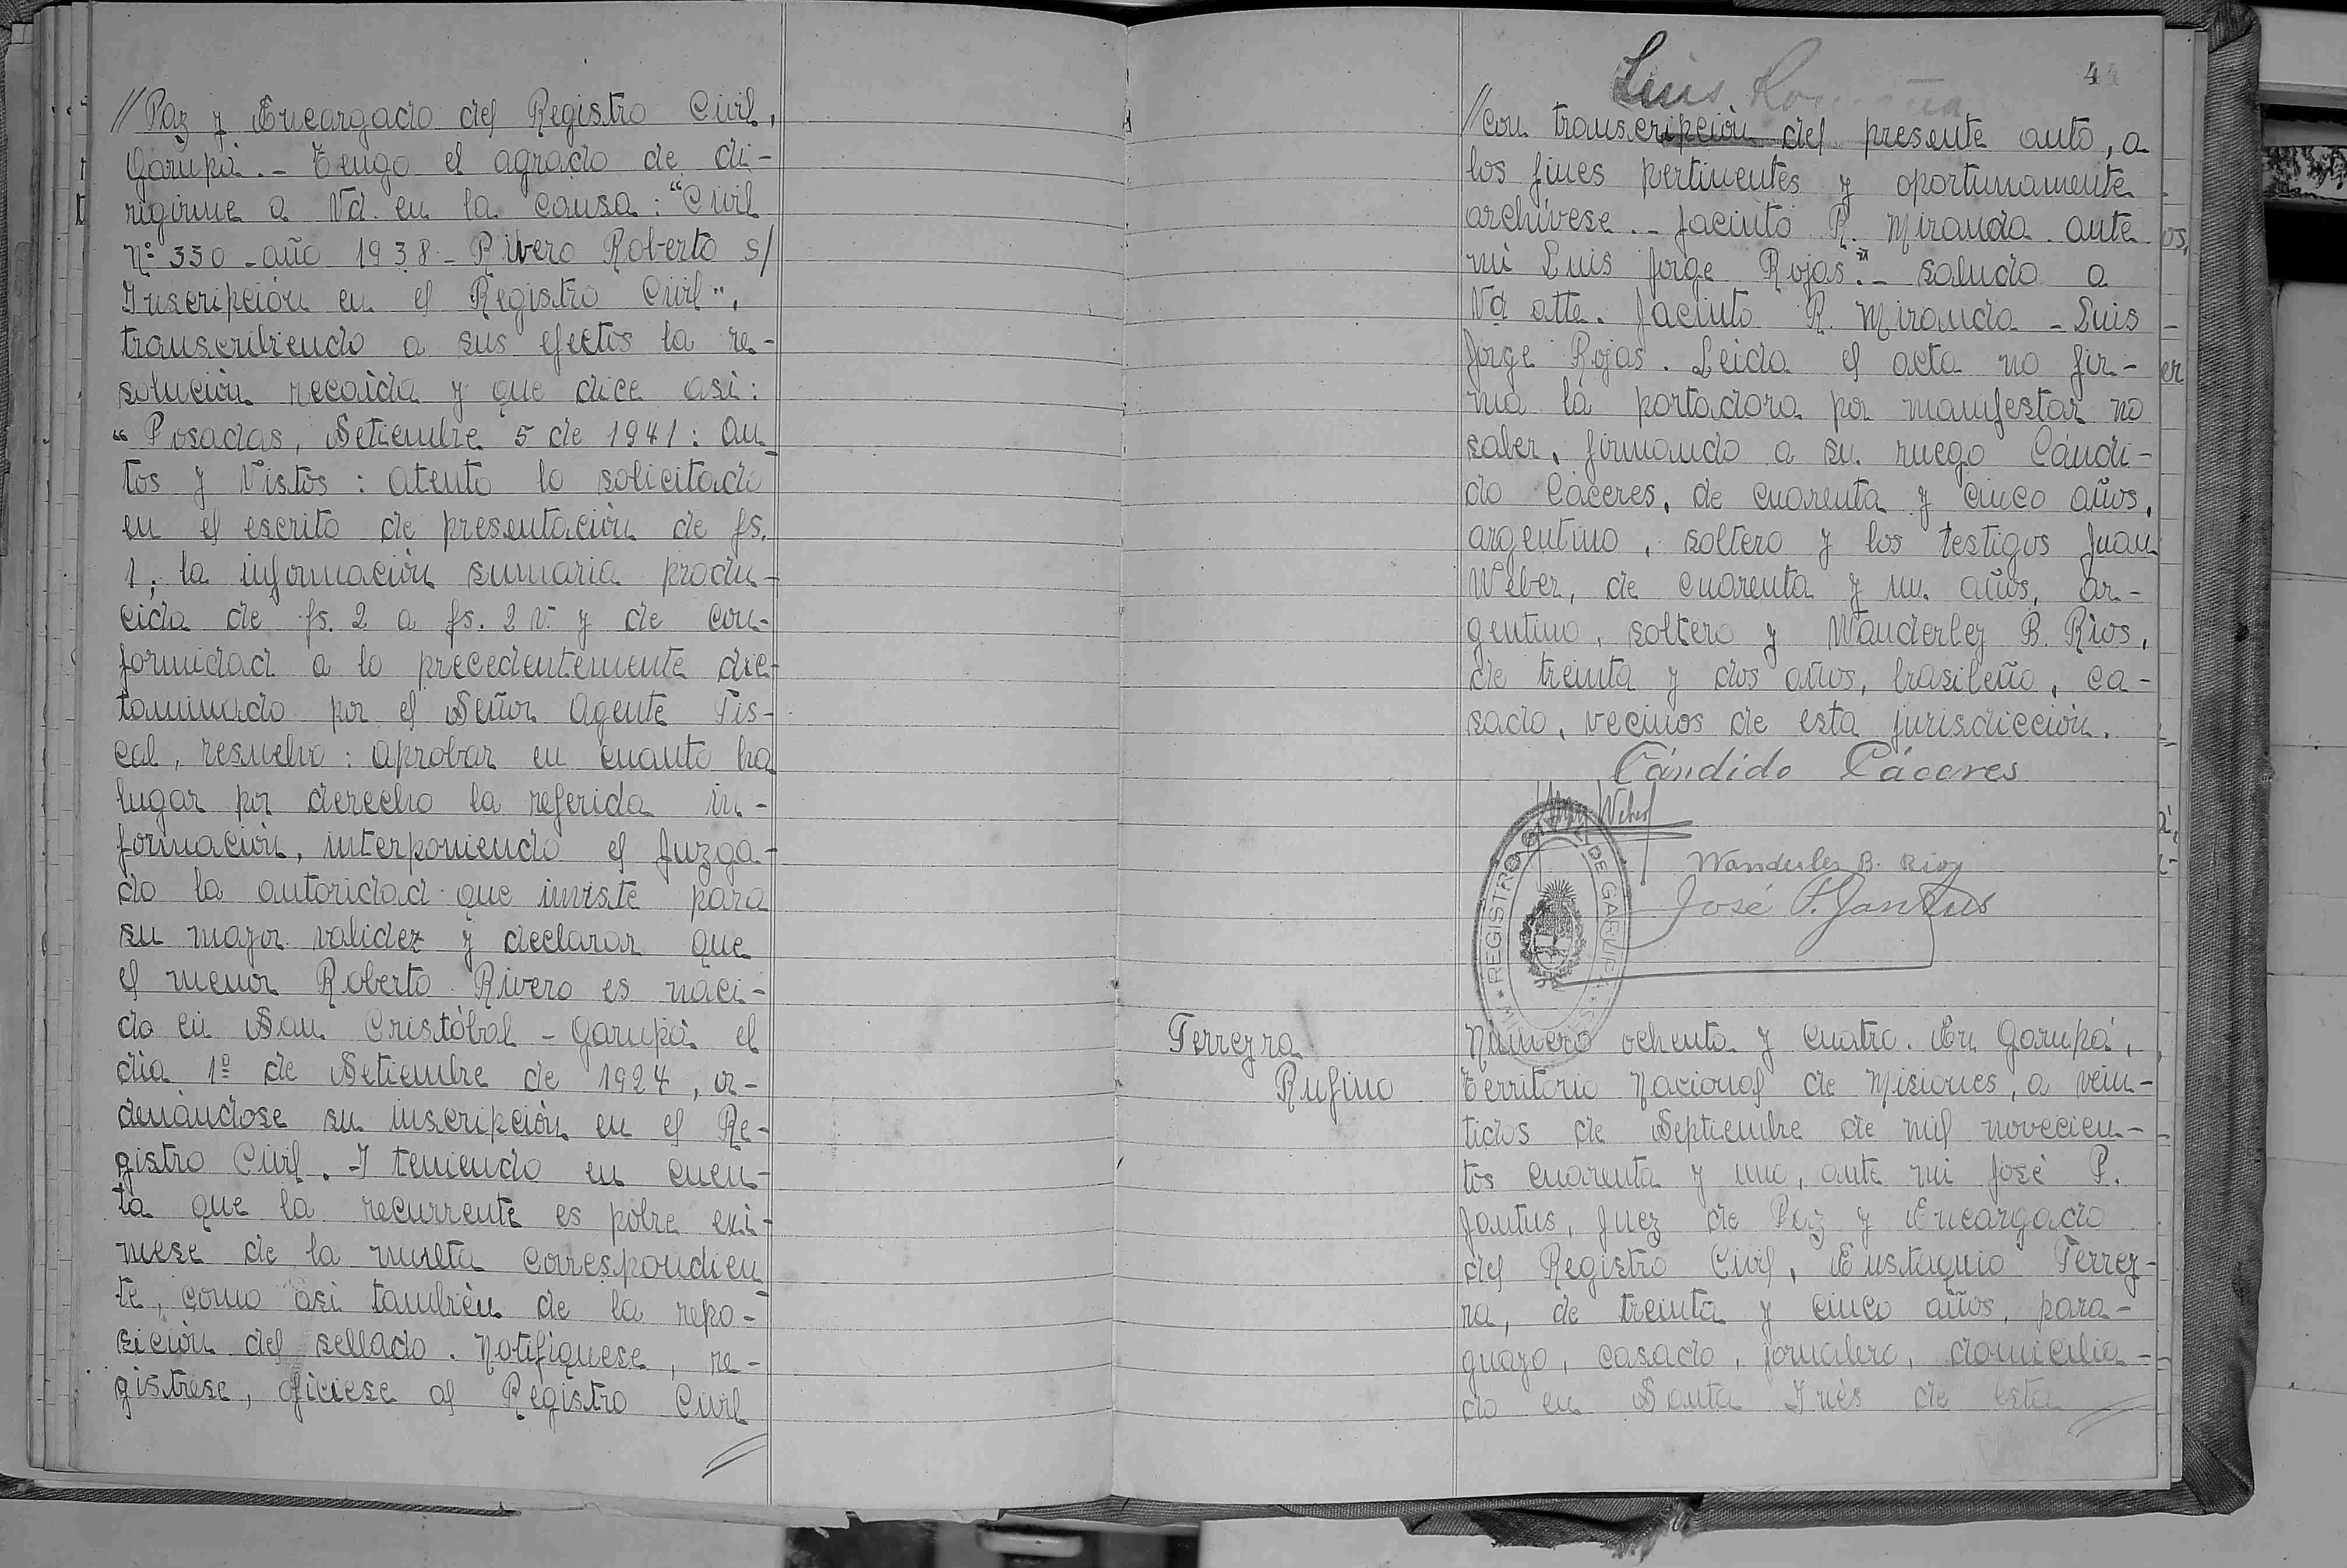 // Paz y Encargado del Registro Civil,
Garupá.- Tengo el agrado de di-
rigirme a Vd. en la causa: "Civil
Nº 330 - año 1938 - Rivero Roberto s/
Inscripción en el Registro Civil",
transcribiendo a sus efectos la re-
solución recaída y que dice así:
"Posadas, Setiembre 5 de 1941: Au-
tos y Vistos: Atento lo solicitado
en el escrito de presentación de fs.
1, la información sumaria produ-
cida de fs. 2 a fs. 2 v. y de con-
formidad a lo precedentemente dic-
taminado por el Señor Agente Fis-
cal, resuelvo: Aprobar en cuanto ha
lugar por derecho la referida in-
formación, interponiendo el Juzga-
do la autoridad que inviste para
su mayor validez y declarar que
el menor Roberto Rivero es naci-
do en San Cristóbal - Garupá el
día 1º de Setiembre de 1924, or-
denándose su inscripción en el Re-
gistro Civil. Y teniendo en cuen-
ta que la recurrente es pobre exi-
mese de la multa correspondien-
te, como así también de la repo-
sición del sellado. Notifíquese, re-
gístrese, ofíciese al Registro Civil
//
Luis
44
// con transcripción del presente auto, a
los fines pertinentes y oportunamente
archívese.- Jacinto R. Miranda. Ante
mi Luis Jorge Rojas".- Saludo a
Vd atte. Jacinto R. Miranda - Luis
Jorge Rojas. Leida el acta no fir-
ma la portadora por manifestar no
saber, firmando a su ruego Cándi-
do Cáceres, de cuarenta y cinco años,
argentino, soltero y los testigos Juan
Weber, de cuarenta y un años, ar-
gentino, soltero y Wanderley B. Rios,
de treinta y dos años, brasileño, ca-
sado, vecinos de esta jurisdicción.
Cándido Cáceres
Juan Weber
Wanderley B. Rios
José P. Jantus
REGISTRO DE GARUPÁ
Ferreyra
Rufino
Número ochenta y cuatro. En Garupá,
Territorio Nacional de Misiones, a vein-
tidos de Septiembre de mil novecien-
tos cuarenta y uno, ante mi José P.
Jantus, Juez de Paz y Encargado
del Registro Civil, Eustaquio Ferrey-
ra, de treinta y cinco años, para-
guayo, casado, jornalero, domicilia-
do en Santa Inés de esta //